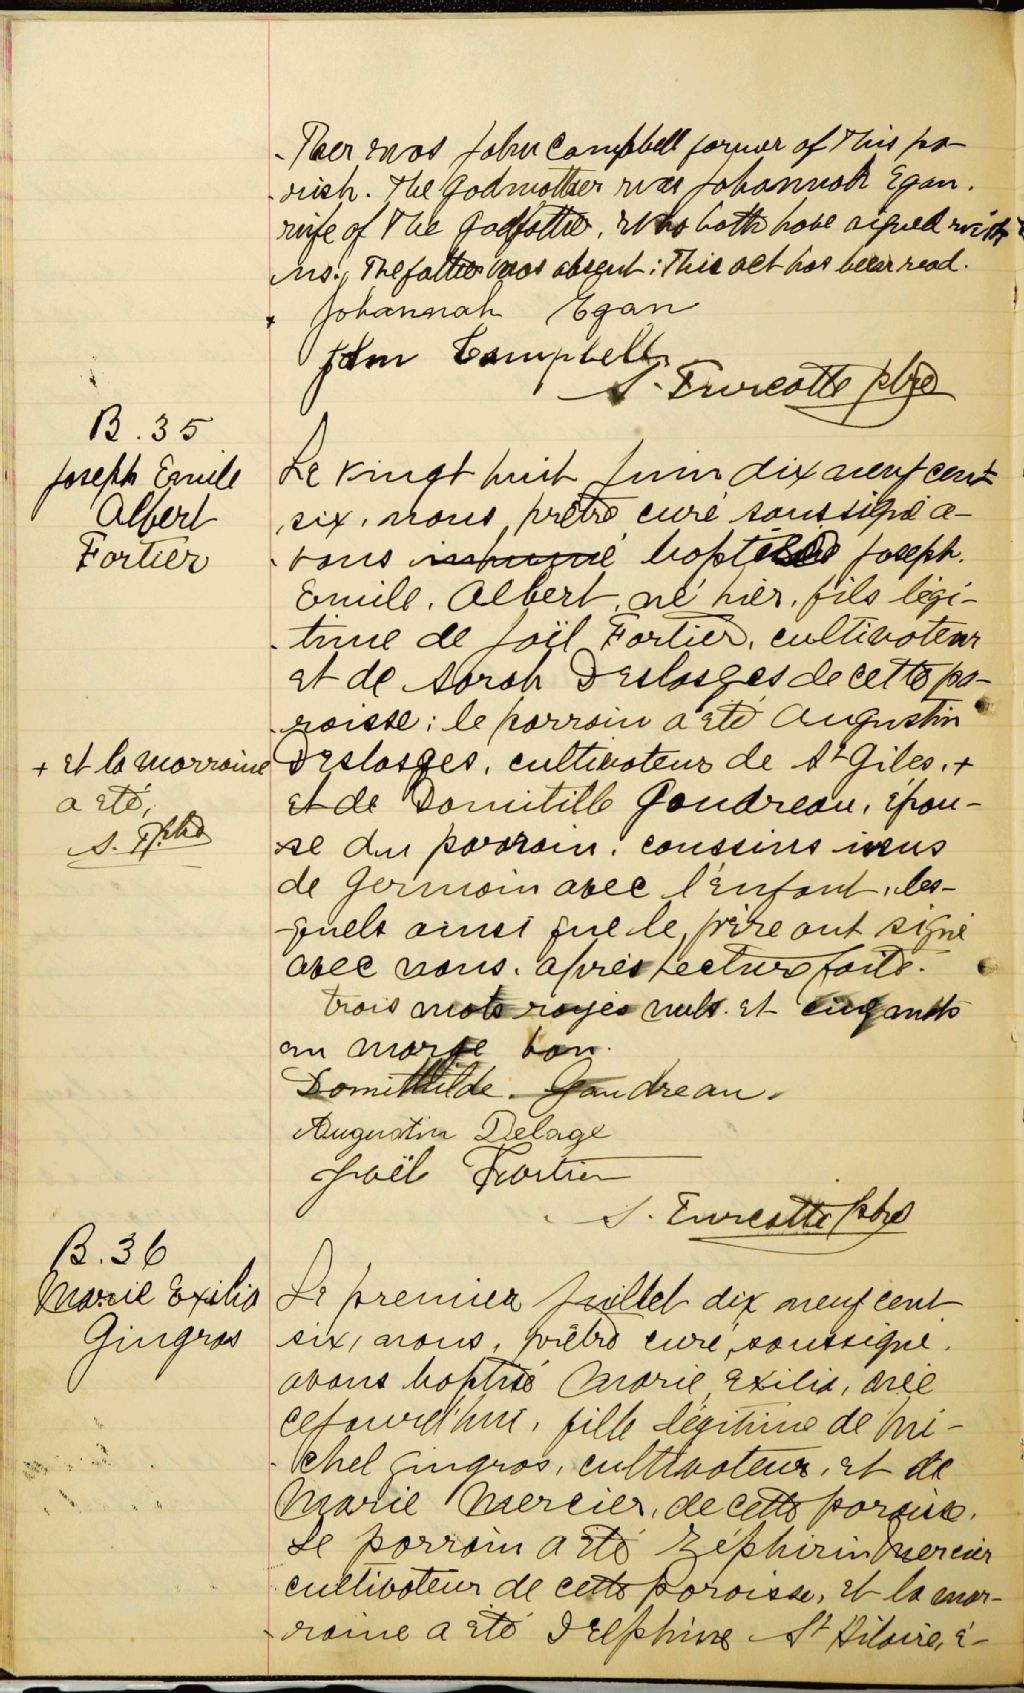 -ther was John Campbell farmer of this pa-
-rish. The godmother was Johannah Egan.
wife of the godfather, who both have signed with
us. The father was absent: This act has been read.
Johannah Egan
John Campbell
S. Turcotte ptre
B. 35
Joseph Emile
Albert
Fortier
Le vingt huit Juin dix neuf cent
six, nous, prêtre curé soussigné a-
-vons inhumé baptisé Joseph.
Emile, Albert, né hier, fils légi-
-time de Joël Fortier, cultivateur
et de Sarah Deslasges de cette pa-
-roisse: le parrain a été Augustin
Deslasges, cultivateur de St Giles, +
+ et la marraine
a été,
S. T. ptre
et de Domitille Gaudreau, épou-
-se du parrain, coussins issus
de germain avec l'enfant, les-
-quels ainsi que le père ont signé
avec nous. après lecture faite.
trois mots rayés nuls. et cinq mots
en marge bon.
Domithilde. Gaudreau.
Augustin Delage
Joël Fortier
S. Turcotte ptre
B. 36
Marie Exilia
Gingras
Le premier Juillet dix neuf cent
six, nous, prêtre curé, soussigné,
avons baptisé Marie, Exilia, née
cejourd'hui, fille légitime de Mi-
-chel Gingras, cultivateur, et de
Marie Mercier, de cette paroisse.
Le parrain a été Zéphirin Mercier
cultivateur de cette paroisse, et la mar-
-raine a été Delphine St Hilaire, é-